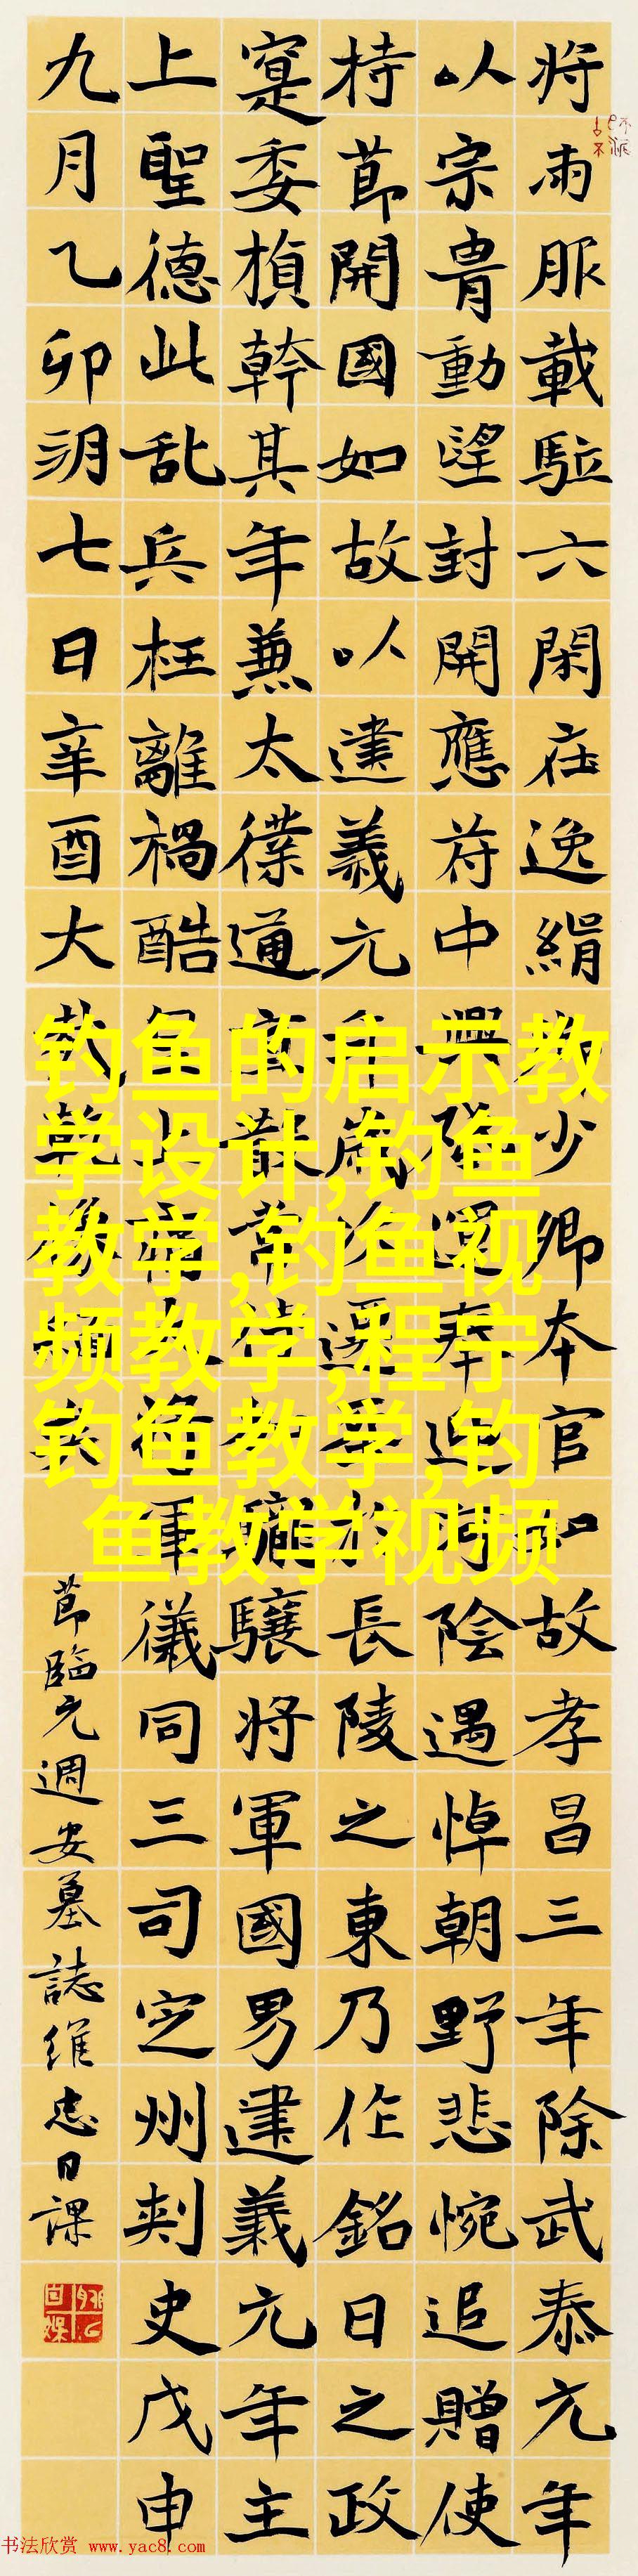 将雨服載駈六閑在逸絹少卿本官如故孝昌三年除武泰元年
以宗胄動望封開應苻中興降還奉迎河陰遇悼朝野悲惋追贈使
持節開國如故以建義元年歲長陵之東乃作銘日之政
寔委楨幹其年兼太僕通直散常侍驤将軍國男建義元年主
上聖德此乱兵枉離禍酷軍儀同三司定州刺史戊申
九月乙卯朔七日辛酉大
節臨元週安墓誌維忠日課
钓鱼的启示教
学设计,钓鱼
教学,钓鱼视
频教学,程宁
钓鱼教学,钓
鱼教学视频
书法欣赏 www.yac8.com